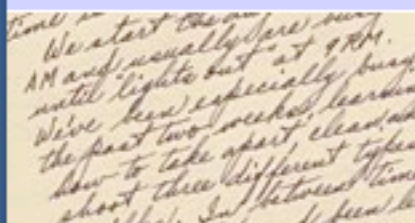 Time
We start the
AM and usually are busy
until "lights out" at 9 P.M.
We've been especially busy
the past two weeks learning
how to take apart, clean, and
shoot three different types
In between time
been